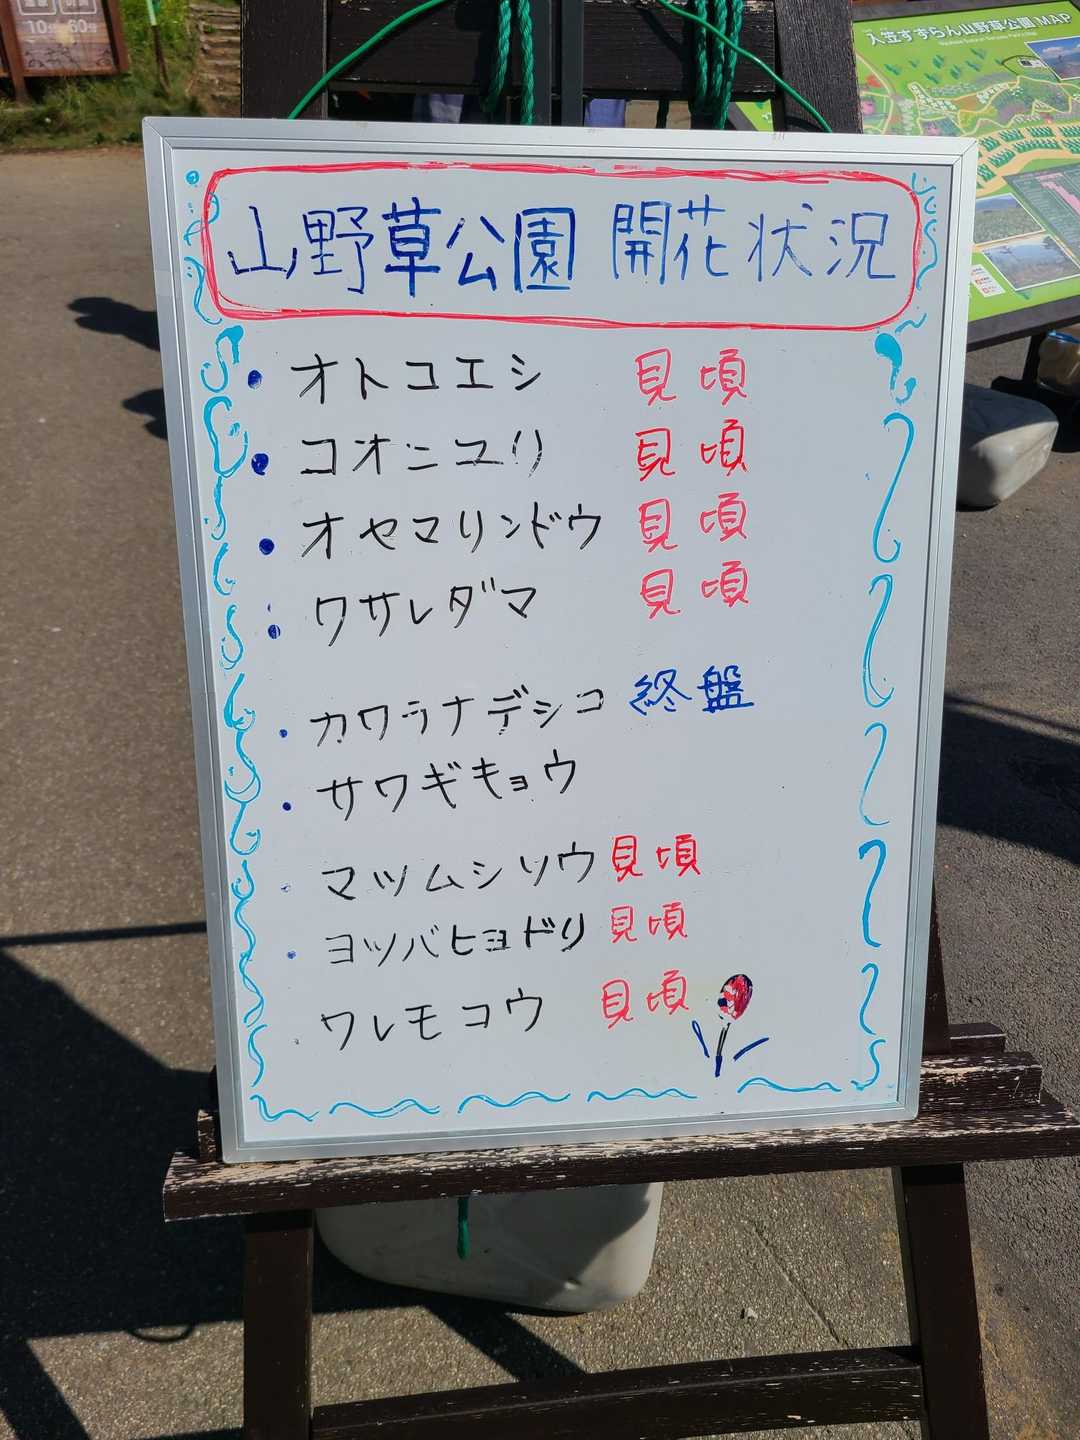 10分 60分
入笠すずらん山野草公園 MAP
山野草公園 開花状況
・オトコエシ 見頃
・コオニユリ 見頃
・オヤマリンドウ 見頃
・ワサレダマ 見頃
・カワラナデシコ 終盤
・サワギキョウ
・マツムシソウ 見頃
・ヨツバヒヨドリ 見頃
・ワレモコウ 見頃